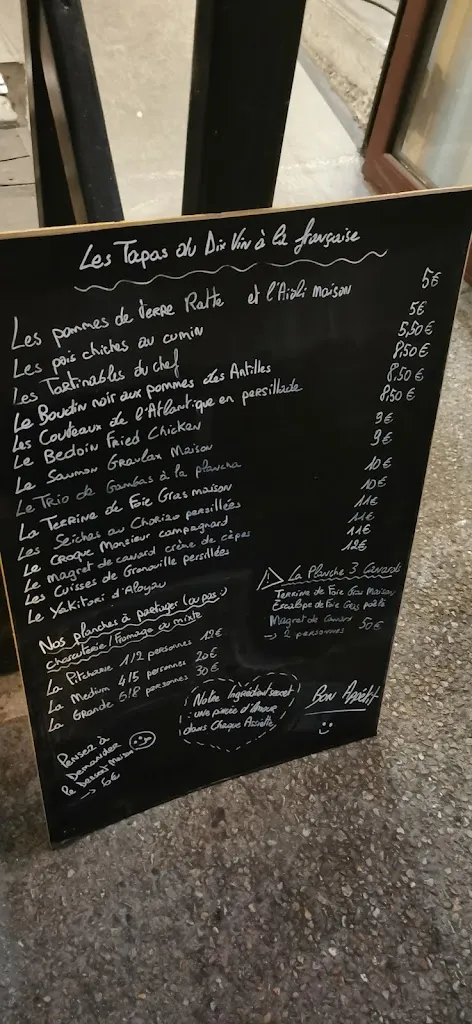 Les Tapas du Dix Vin à la française
Les pommes de terre Ratte et l'Aïoli maison 5€
Les pois chiches au cumin 5€
Les Tartinables du chef 5,50€
Le Boudin noir aux pommes des Antilles 8,50€
Les Couteaux de l'Atlantique en persillade 8.50€
Le Bedoin Fried Chicken 8.50€
Le Saumon Gravlax Maison 9€
Le Trio de Gambas à la plancha 9€
La Terrine de Foie Gras maison 10€
Les Seiches au Chorizo persillées 10€
Le Croque Monsieur campagnard 11€
Le magret de canard crème de cèpes 11€
Les Cuisses de Grenouille persillées 11€
Le Yakitori d'Aloyau 12€
Nos planches à partager (ou pas :)
charcuterie / fromage ou mixte
La Pitchoune 1/2 personnes 12€
La Medium 4/5 personnes 20€
La Grande 6/8 personnes 30€
⚠ La Planche 3 Canards
Terrine de Foie Gras Maison
Escalope de Foie Gras poêlé
Magret de Canard
→ 2 personnes 50€
Notre Ingrédient secret
: une pincée d'Amour
dans Chaque Assiette
Bon Appétit
:)
Pensez à
Demander
le Dessert Maison
→ 6€